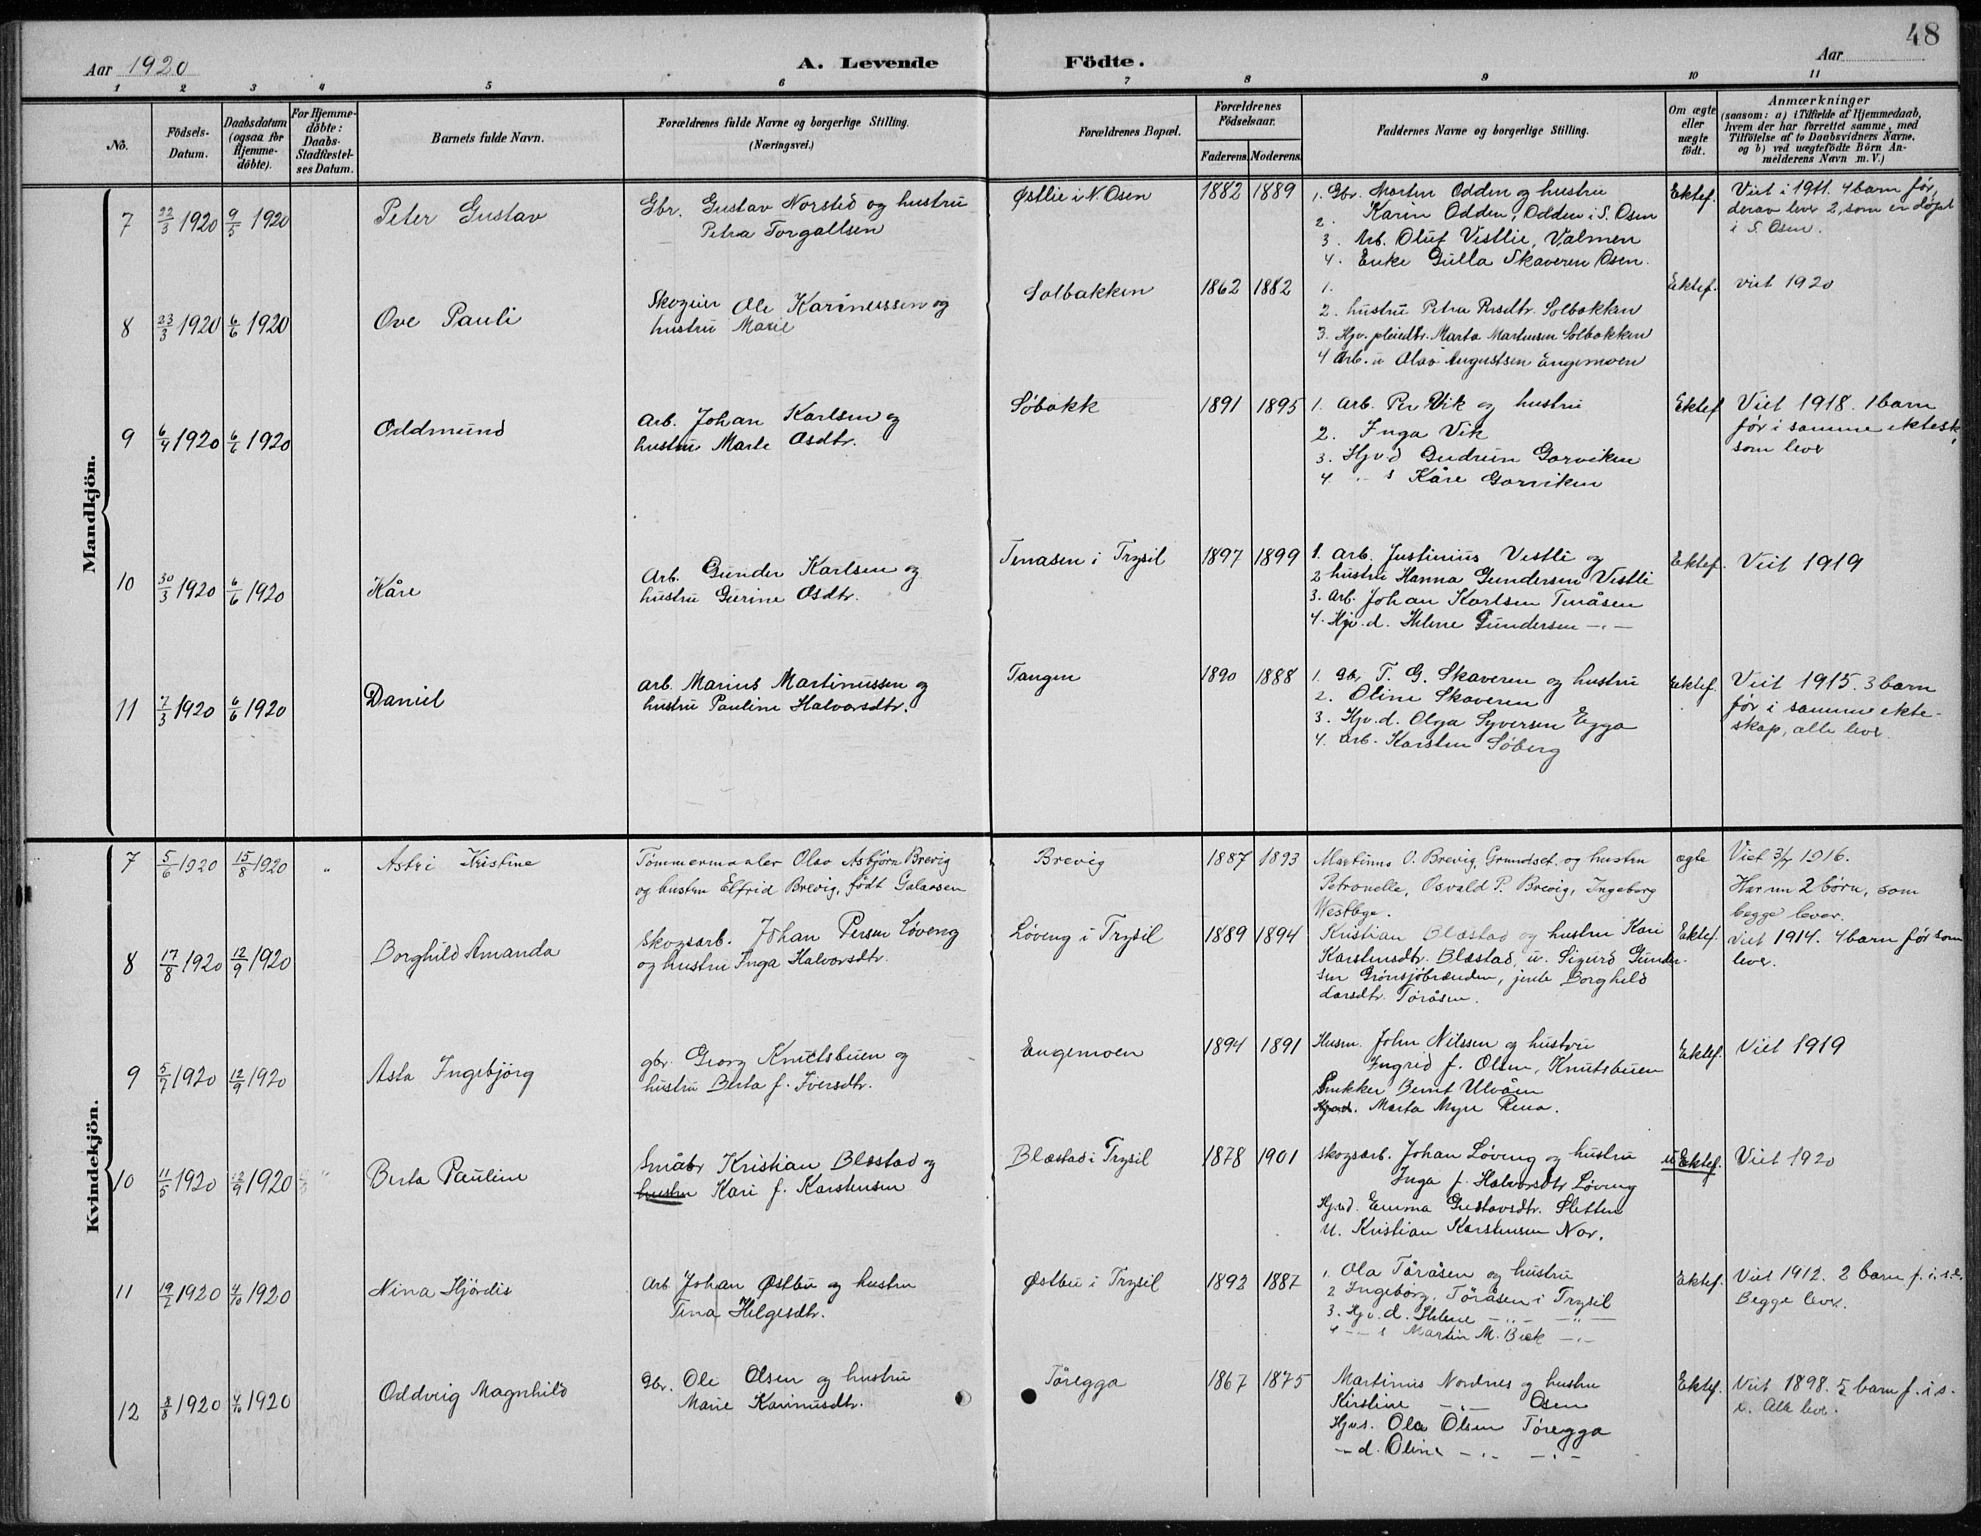 48
Aar 1920
A. Levende Födte.
Aar
1 2 3 4 5 6 7 8 9 10 11
No.
Födsels-Datum.
Daabsdatum (ogsaa for Hjemme-döbte).
For Hjemme-döbte: Daabs-Stadfæstel-ses Datum.
Barnets fulde Navn.
Forældrenes fulde Navne og borgerlige Stilling.
(Næringsvei.)
Forældrenes Bopæl.
Forældrenes Födselsaar.
Faderens. Moderens.
Faddernes Navne og borgerlige Stilling.
Om ægte eller uægte födt.
Anmærkninger
(saasom: a) i Tilfælde af Hjemmedaab, hvem der har forrettet samme, med Tilföielse af to Daabsvidners Navne, og b) ved uægtefödte Börn An-melderens Navn m. V.)
Mandkjön.
7 22/3 1920 9/5 1920 Peter Gustav
Gbr. Gustav Norsted og hustru
Petra Torgallsen
Østlie i N. Osen 1882 1889
1. Gbr. Morten Odden og hustru
2. Karen Odden, Odden i S. Osen
3. Arb. Oluf Vestlie, Valmen
4. Enke Gulla Skaveren Osen.
Ektef.
Viet i 1911. 4 barn før,
derav lever 2, som er døpt
i S. Osen.
8 23/3 1920 6/6 1920 Ove Pauli
Skogeier Ole Karinussen og
hustru Marie
Solbakken 1862 1882
1.
2. hustru Petra Persdtr. Solbakken
3. Hjv. pleiedtr. Marta Martinsen Solbakken
4 Arb. u Olav Augustsen Engemoen
Ektef. viet 1920
9 6/4 1920 6/6 1920 Oddmund
Arb. Johan Karlsen og
hustru Marte Osdtr.
Søbakk 1891 1895
1. Arb. Per Vik og hustru
2. Inga Vik
3. Hjv.d Gudrun Gorviken
4 -"- s Kåre Gorviken
Ektef
Viet 1918. 1 barn
før i samme ektesk,
som lever
10 30/3 1920 6/6 1920 Kåre
Arb. Gunder Karlsen og
hustru Gurine Osdtr.
Tenåsen i Trysil 1897 1899
1. Arb. Justinius Vestli og
2 hustru Hanna Gundersen Vestli
3. Arb. Johan Karlsen Tenåsen
4. Hjv. d. Helene Gundersen -"-
Ektef. Viet 1919
11 7/3 1920 6/6 1920 Daniel
Arb. Marius Martinussen og
hustru Pauline Halvorsdtr.
Tangen 1890 1888
1. Gbr T. G. Skaveren og hustru
2. Oline Skaveren
3. Hjv. d. Olga Syversen Egga
4. Arb. Karsten Søberg
Ektef.
Viet 1915. 3 barn
før i samme ekte-
skap, alle lever.
Kvindekjön.
7 5/6 1920 15/8 1920 " Astri Kristine
Tømmermaaler Olav Asbjørn Brevig
og hustru Elfrid Brevig, født Galaasen
Brevig 1887 1893
Martinus O. Brevig, Grundset, og hustru
Petronelle, Osvald P. Brevig, Ingeborg
Westbye.
ægte
Viet 3/7 1916.
Har nu 2 børn, som
begge lever.
8 17/8 1920 12/9 1920 Borghild Amanda
Skogsarb. Johan Persen Løveng
og hustru Inga Halvorsdtr.
Løveng i Trysil 1889 1894
Kristian Blæstad og hustru Kari
Karstensdtr. Blæstad, u. Sigurd Gunder-
sen Grønsjøbrænden, jente Borghild
Larsdtr. Tøråsen.
Ektef.
viet 1914. 4 barn før som
lever.
9 5/7 1920 12/9 1920 Asta Ingebjörg
gbr. Georg Knutsbuen og
hustru Berta f. Iversdtr.
Engemoen 1894 1891
Husm. John Nilssen og hustru
Ingrid f. Olsen, Knutsbuen
Snekker Bernt Ulvåen
Hjvd. Marta Myre Rena.
Ektef. Viet 1919
10 11/5 1920 12/9 1920 Berta Pauline
Småbr Kristian Blæstad og
hustru Kari f. Karstensen
Blæstad i Trysil 1878 1901
Skogsarb. Johan Løveng og hustru
Inga f. Halvorsdtr Løveng
Hjv.d. Emma Gustavsdtr. Sletten
U. Kristian Karstensen Nor.
u Ektef. Viet 1920
11 19/7 1920 4/10 1920 Nina Hjördis
Arb Johan Østbu og hustru
Tina Helgesdtr.
Østbu i Trysil 1892 1887
1. Ola Tøråsen og hustru
2 Ingeborg, Tøråsen i Trysil
3. Hjv. d. Helene -"- -"-
4 -"- s Martin M. Bæk -"-
Ektef.
Viet 1912. 2 barn f. i. s.e.
Begge lever.
12 8/8 1920 4/10 1920 Oddveig Magnhild
Gbr. Ole Olsen og hustru
Marie Karinusdtr.
Tøregga 1867 1875
Martinus Nordnes og hustru
Kirstine -"- Osen
Hjv.s. Ola Olsen Tøregga
-"- d. Oline -"- -"-
Ektef.
Viet 1898. 5 barn f. i s.
e. Alle lever.